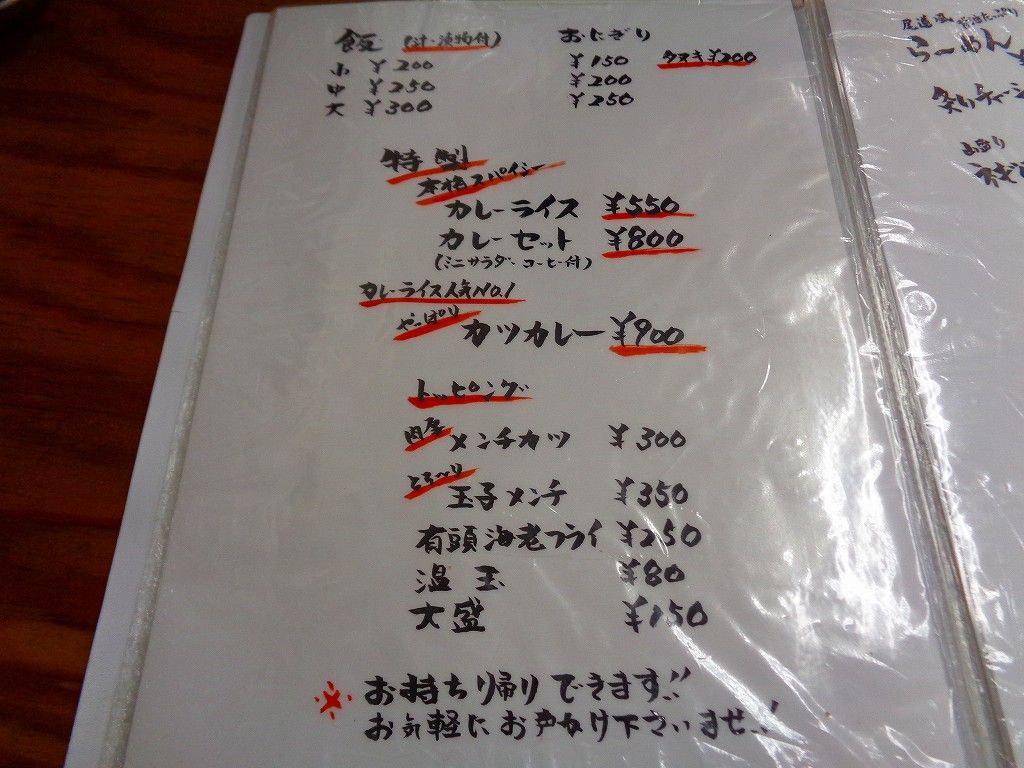 飯 (汁・漬物付)
小 ¥200
中 ¥250
大 ¥300
おにぎり
¥150 タヌキ¥200
¥200
¥250
特製
本格スパイシー
カレーライス ¥550
カレーセット ¥800
(ミニサラダ・コーヒー付)
カレーライス人気No.1
やっぱり
カツカレー ¥900
トッピング
肉厚
メンチカツ ¥300
とろ〜り
玉子メンチ ¥350
有頭海老フライ ¥250
温玉 ¥80
大盛 ¥150
※お持ち帰りできます!!
お気軽にお声かけ下さいませ!
尾道風
らーめん
炙りチャーシ